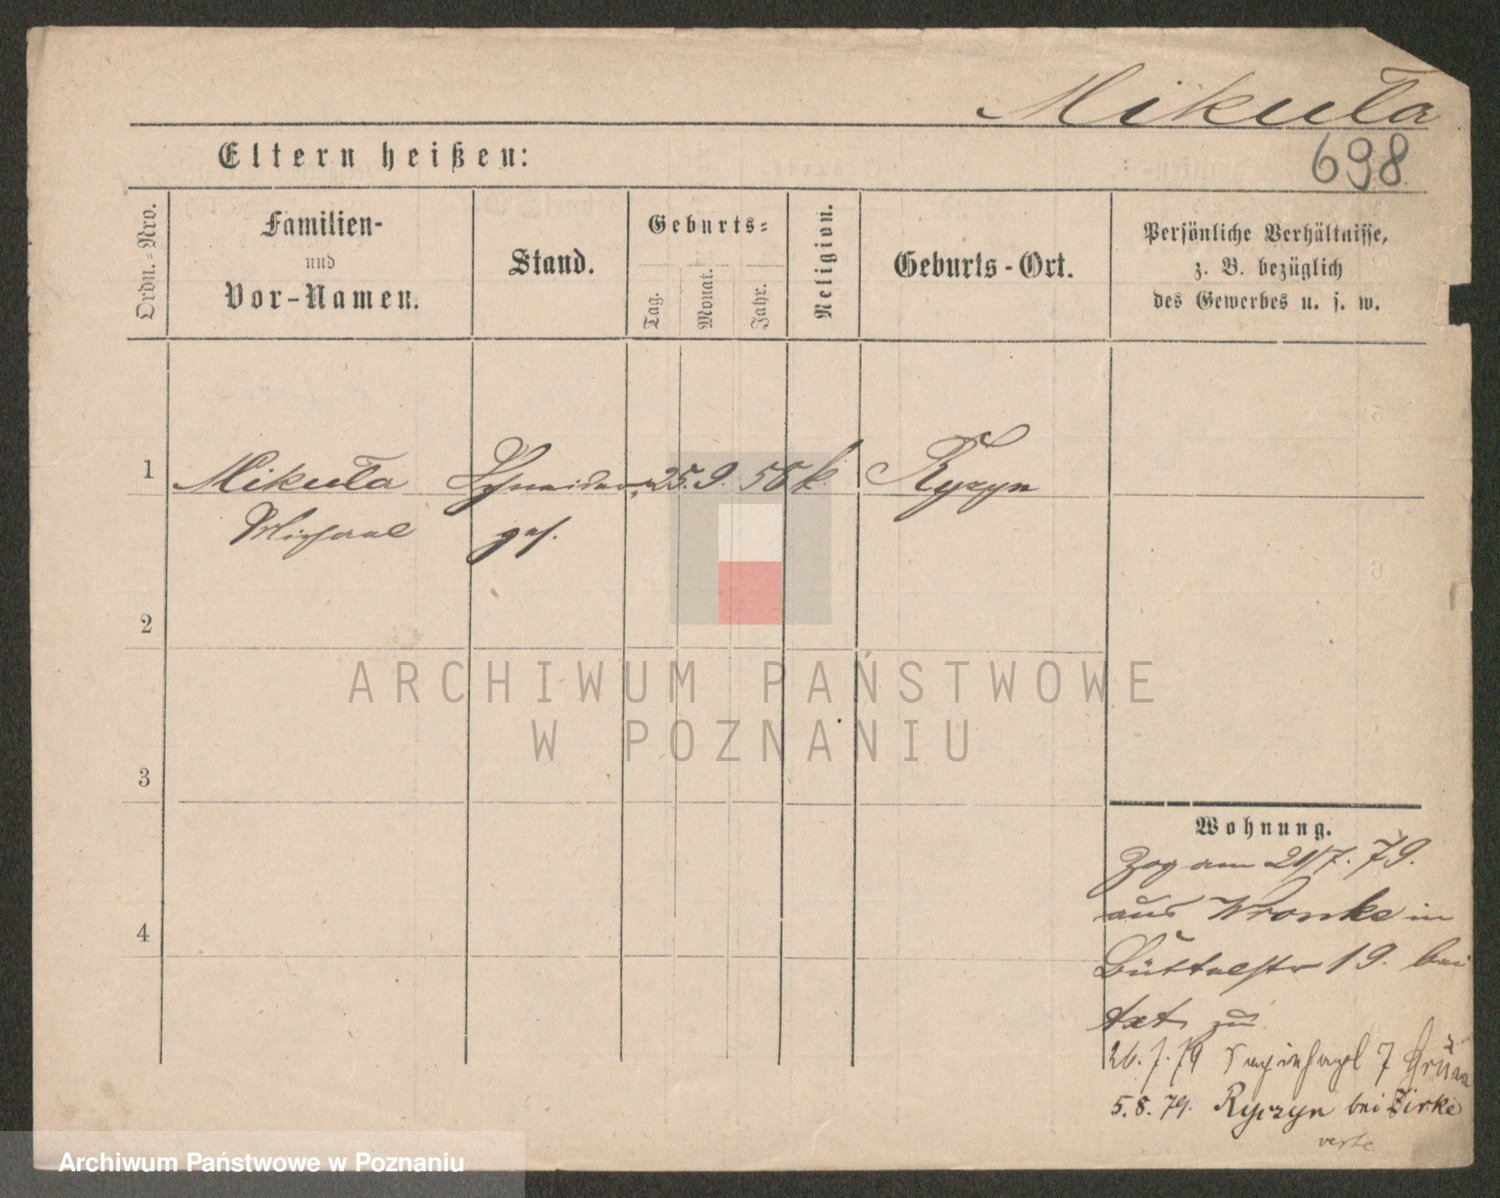 Mikuła
698
Eltern heißen:
Ordn.-Nro.
Familien-
und
Vor-Namen.
Stand.
Geburts-
Tag.
Monat.
Jahr.
Religion.
Geburts-Ort.
Persönliche Verhältnisse,
z. B. bezüglich
des Gewerbes u. s. w.
1
Mikuła Schneider 25. 9. 56 k. Ryzyn
Michael ges.
2
ARCHIWUM PAŃSTWOWE
W POZNANIU
3
Wohnung.
Zog am 21/7. 79.
aus Wronke in
Büttelstr 19. bei
zu
4
26. 7. 79 7 Grün
5. 8. 79. Ryczyn bei Zirke
verte
Archiwum Państwowe w Poznaniu